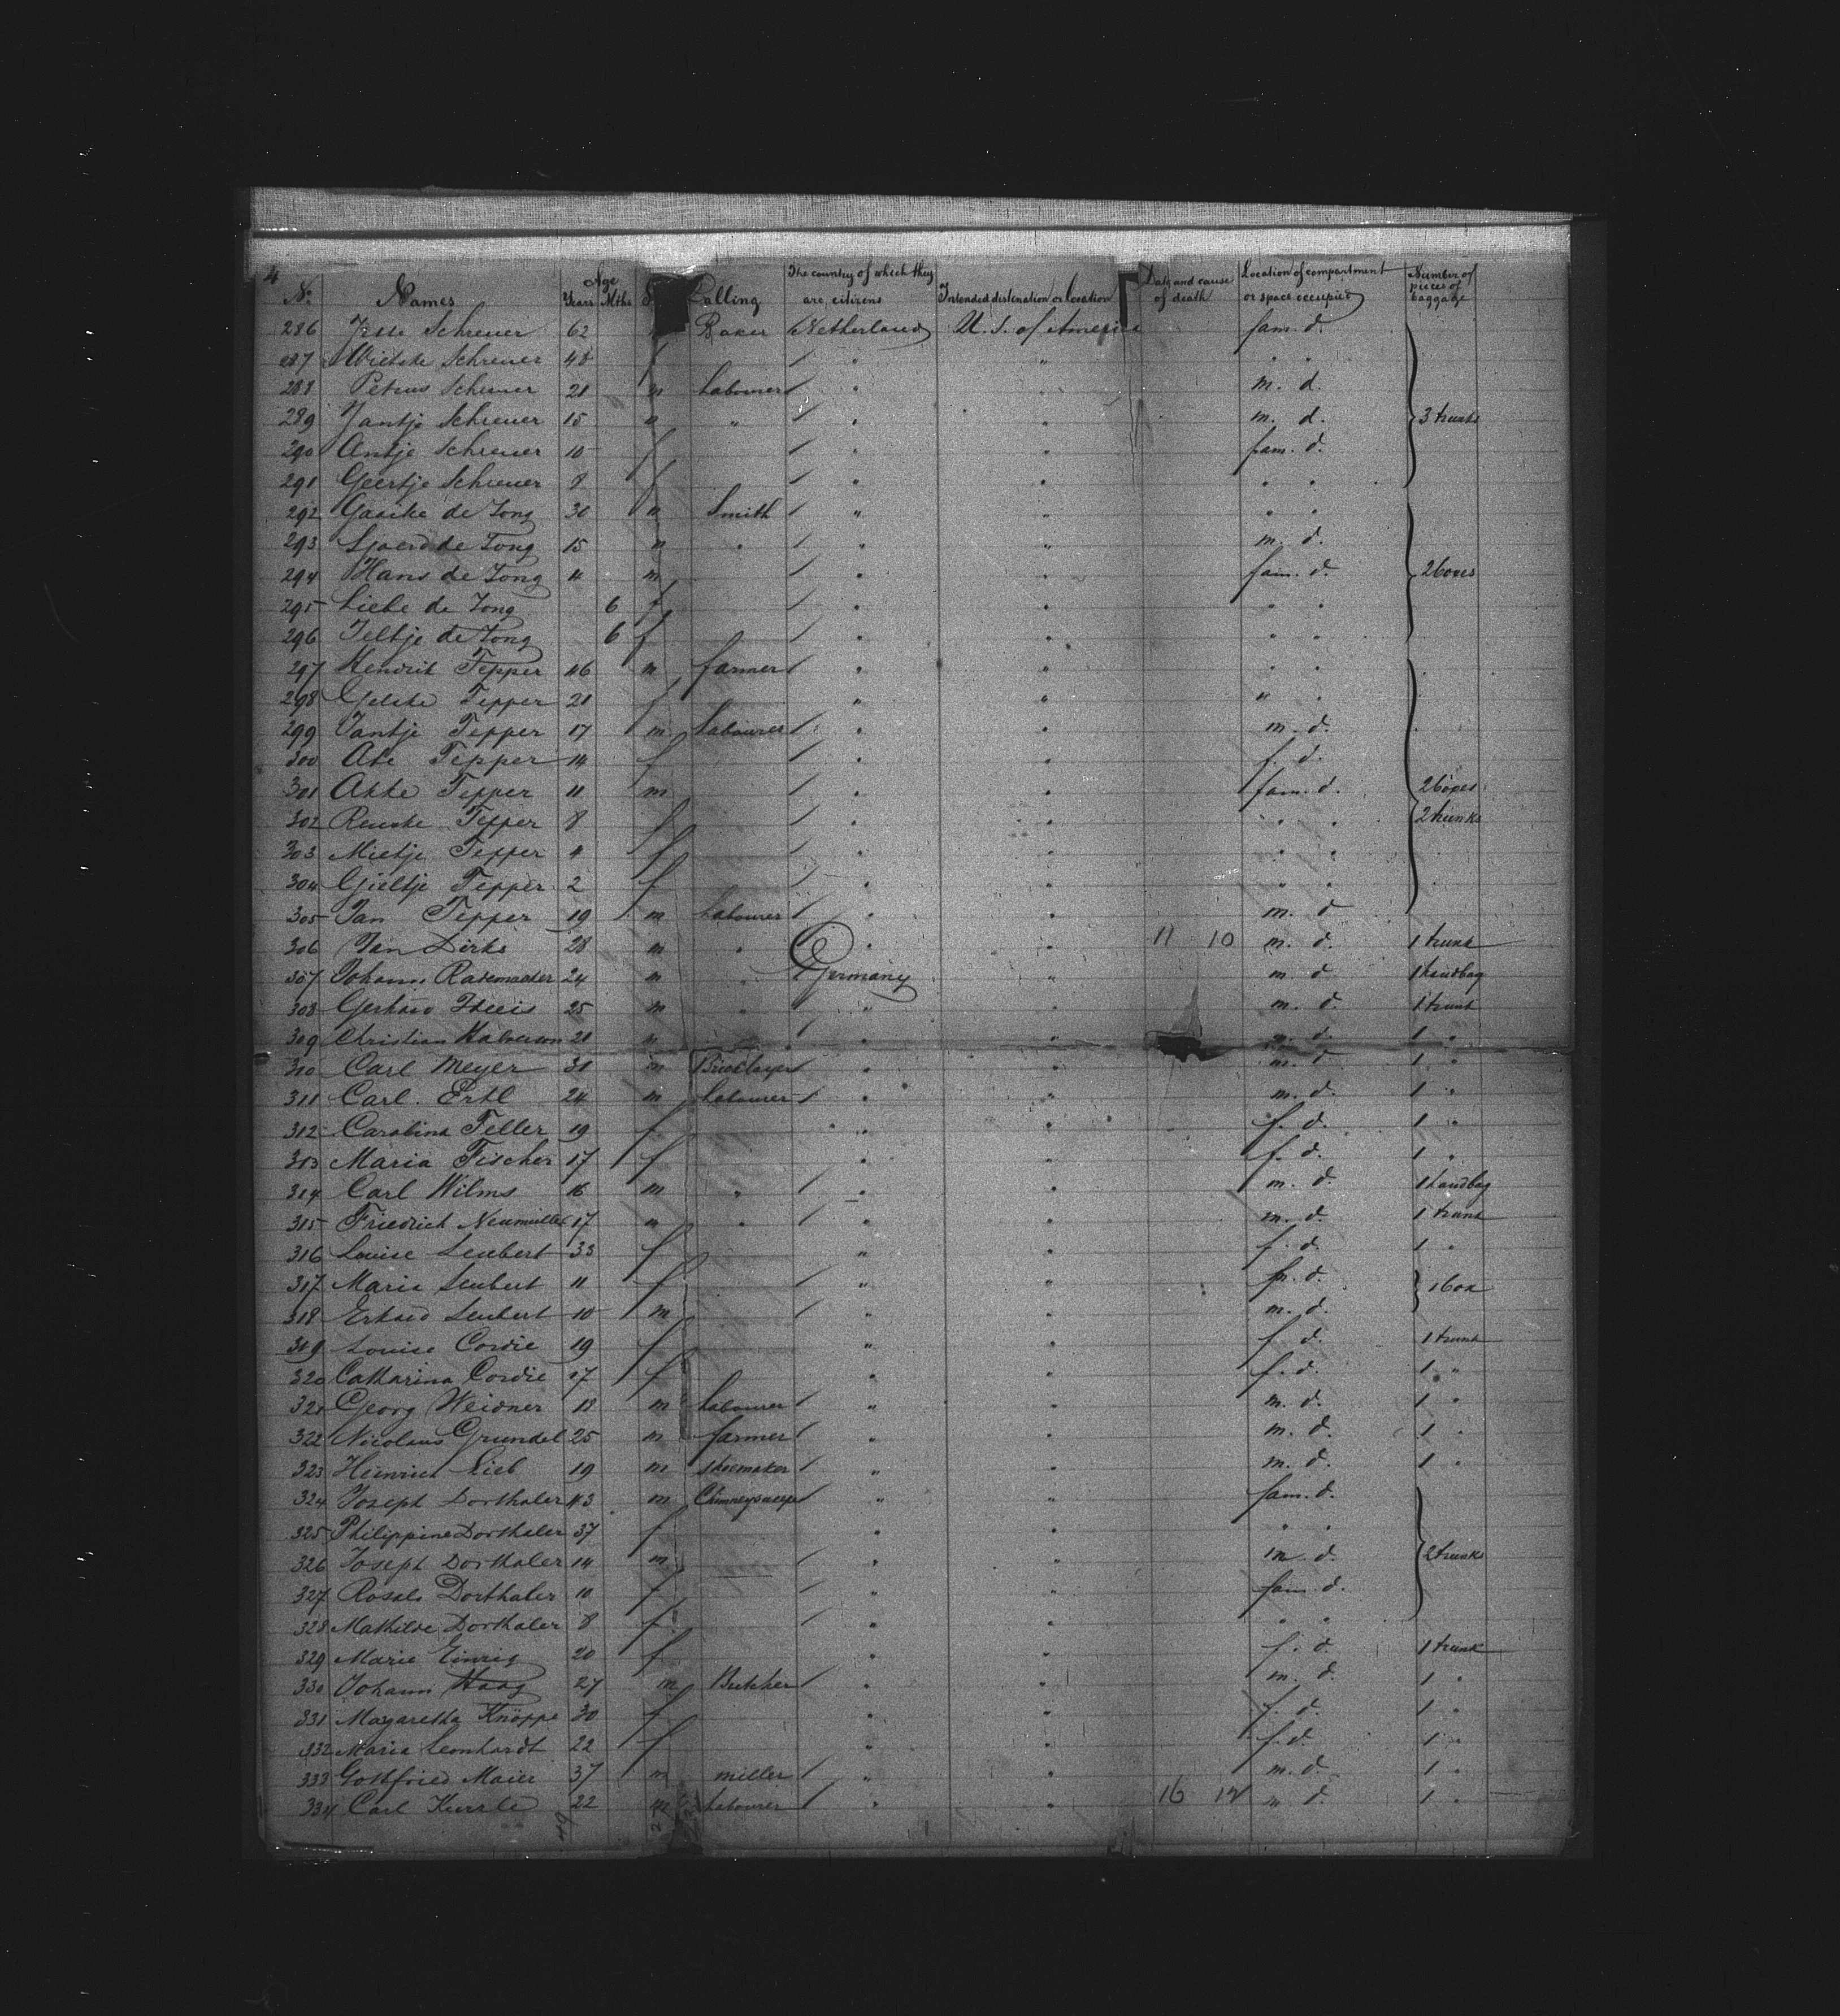 4
No. Names Age Years Mths Calling The country of which they are citizens Intended destination or location Date and cause of death Location of compartment or space occupied Number of pieces of baggage
286 Schreuer 62 Baker Netherland U. S. of America fam. d.
287 Wietske Schreuer 48 f " " " "
288 Petrus Schreuer 21 m Labourer " " m. d.
289 Jantje Schreuer 15 m " " " m. d. 3 trunks
290 Antje Schreuer 10 f " " fam. d.
291 Geertje Schreuer 8 f " " " "
292 de Jong 30 m Smith " " " "
293 Sjoerd de Jong 15 m " " " m. d.
294 Hans de Jong 4 m " " fam. d. 2 boxes
295 Liebe de Jong 6 f " " " "
296 Jeltje de Jong 6 f " " " "
297 Hendrik Tepper 46 m farmer " " " "
298 Tepper 21 f " " " "
299 Jantje Tepper 17 m Labourer " " m. d.
300 Tepper 14 f " " f. d.
301 Akke Tepper 11 m " " fam. d. 2 boxes
302 Renske Tepper 8 f " " " " 2 trunks
303 Mietje Tepper 4 f " " " "
304 Gieltje Tepper 2 f " " " "
305 Jan Tepper 19 m Labourer " " m. d
306 Jan Dirks 28 m " " " 11 10 m. d. 1 trunk
307 Johann Rademacker 24 m " Germany " m. d 1 handbag
308 Gerhard 25 m " " " m. d. 1 trunk
309 Christian Halverson 21 m " " " m. d. 1 "
310 Carl Meyer 31 m Bricklayer " " m. d 1 "
311 Carl Ertl 24 m Labourer " " m. d. 1 "
312 Carolina Teller 19 f " " f. d. 1 "
313 Maria Fischer 17 f " " f. d. 1 "
314 Carl Wilms 16 m " " " m. d. 1 handbag
315 Friedrich Neumüller 17 m " " " m. d. 1 trunk
316 Louise Leubert 33 f " " f. d. 1 "
317 Maria Leubert 11 f " " f. d. 1 box
318 Erhard Leubert 10 m " " m. d.
319 Louise Cordie 19 f " " f. d. 1 trunk
320 Catharina Cordie 17 f " " f. d. 1 "
321 Georg Weidner 18 m Labourer " " m. d. 1 "
322 Nicolaus Grundel 25 m farmer " " m. d. 1 "
323 Heinrich Lieb 19 m shoemaker " " m. d. 1 "
324 Joseph Dorthaler 43 m Chimneysweeper " " fam. d.
325 Philippine Dorthaler 37 f " " " "
326 Joseph Dorthaler 14 m " " m. d. 2 trunks
327 Rosale Dorthaler 10 f " " fam. d.
328 Mathilde Dorthaler 8 f " " " "
329 Marie Einrig 20 f " " f. d. 1 trunk
330 Johann Haag 27 m Butcher " " m. d. 1 "
331 Magaretha Knöppe 30 f " " f. d. 1 "
332 Maria Leonhardt 22 f " " f. d. 1 "
333 Gottfried Maier 37 m miller " " m. d. 1 "
334 Carl Kurrle 22 m Labourer " " 16 12 m d. 1 "